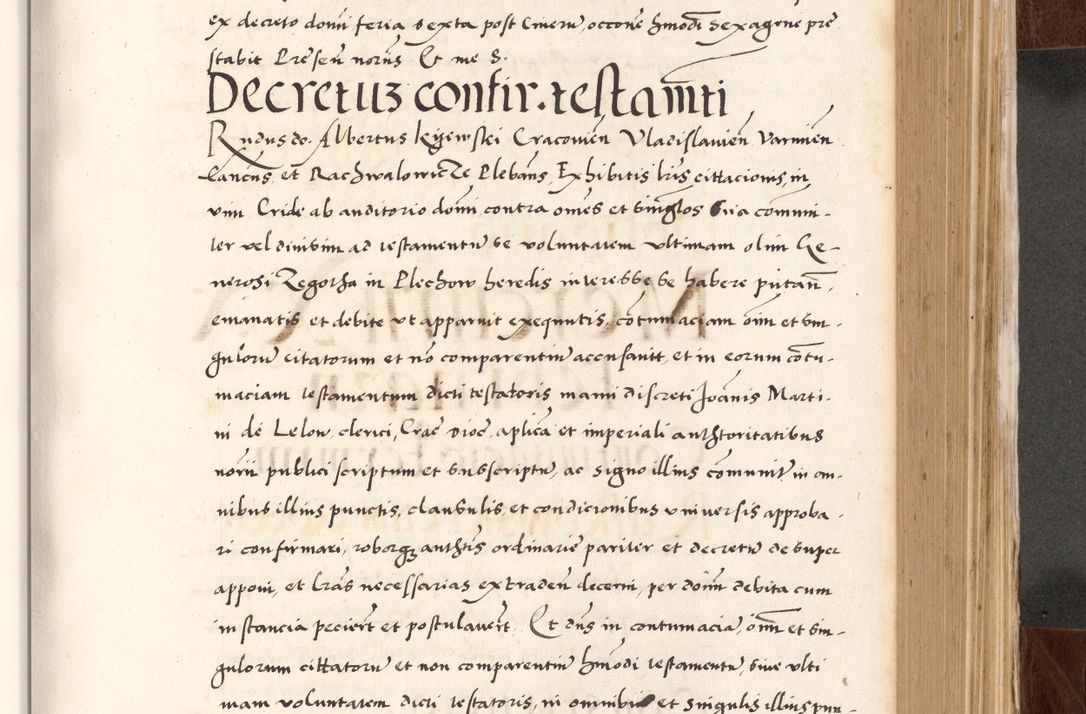 ex decreto domi feria sexta post Cinerũ, occone hmodi sexagene pre
stabit Presen̄ norijs Et me S.
Decretuʒ confir. testam̃ti
Rndus do. Albertus kijewski Cracovien̄ Vladislavien̄ Varmien̄
Canc̃us et Rachwalowicze Pleban̄s Exhibitis lris cittacionis, in
vim Cride ab auditorio domi contra om̃es et sin̄glos sua cõmuni-
ter vel divisim ad testamentũ se voluntatem ultimam olim Ge-
nerosi Zegotha in Plechow heredis interesse se habere putan̄.
emanatis et debite ut apparuit exequutis, cõtumaciam oim̃ et sin-
gulorũ citatorum et nõ comparentiũ accusavit, et in eorum cõtu-
maciam testamentum dicti testatoris manu discreti Joãnis Marti-
ni de Lelow, clerici, Crac̃ dioc̃ aplica et imperiali authoritatibus
norij publici scriptum et subscriptũ, ac signo illius cõmunit̃ in om-
nibus illius punctis, clausulis et condicionibus universis approba-
ri confirmari, roborq̃ authtis ordinarie pariter et decretũ desuper
apponi, et lras necessarias extraden̄ decerni, per domi debita cum
instancia peciert̃ et postulavert̃. Et dñs in contumaciã, oim̃ et sin-
gulorum cittatorũ et non comparentiũ hmodi testamentũ sive ulti
mam voluntatem dicti testatoris, in omnibus et singulis illius pun-